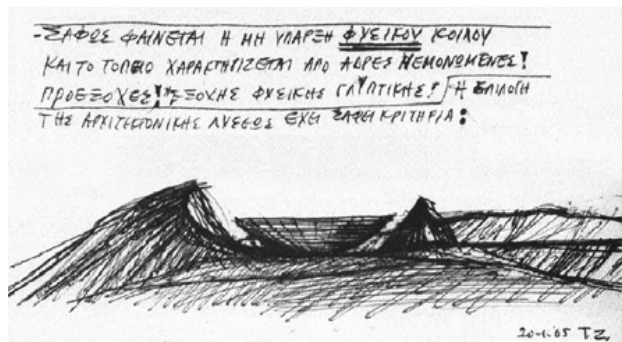 -ΣΑΦΩΣ ΦΑΙΝΕΤΑΙ Η ΜΗ ΥΠΑΡΞΗ ΦΥΣΙΚΟΥ ΚΟΙΛΟΥ
ΚΑΙ ΤΟ ΤΟΠΙΟ ΧΑΡΑΚΤΗΡΙΖΕΤΑΙ ΑΠΟ ΑΔΡΕΣ ΜΕΜΟΝΩΜΕΝΕΣ!
ΠΡΟΕΞΟΧΕΣ! ΕΞΟΧΗΣ ΦΥΣΙΚΗΣ ΓΛΥΠΤΙΚΗΣ! Η ΕΠΙΛΟΓΗ
ΤΗΣ ΑΡΧΙΤΕΚΤΟΝΙΚΗΣ ΛΥΣΕΩΣ ΕΧΕΙ ΣΑΦΕΙ ΚΡΙΤΗΡΙΑ:
ΤΖ